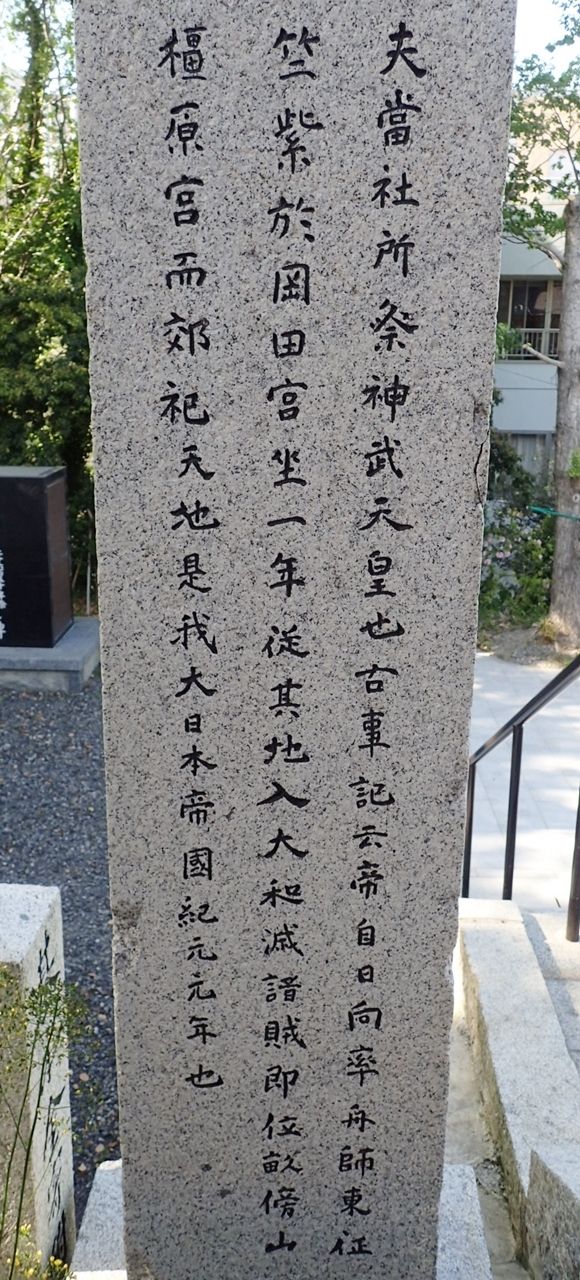 夫當社所祭神武天皇也古事記云帝自日向率舟師東征
竺紫於岡田宮坐一年従其地入大和滅諸賊即位畝傍山
橿原宮而郊祀天地是我大日本帝國紀元元年也